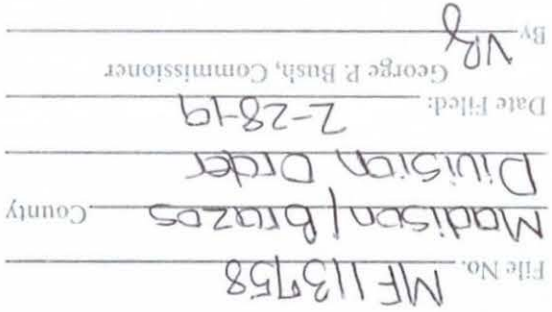 File No. MF113758
Madison/Brazos County
Division Order
Date Filed: 2-28-19
George P. Bush, Commissioner
By VRJ